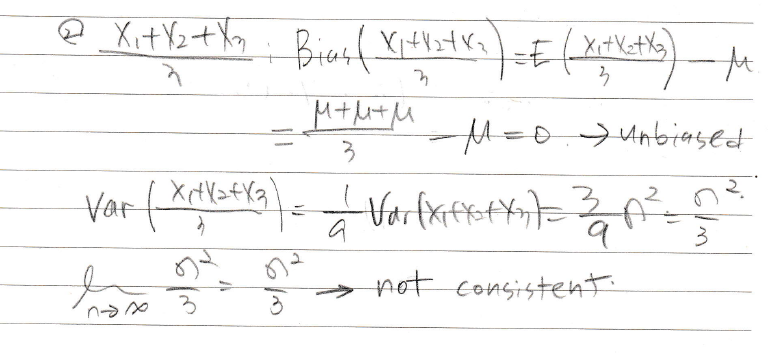 ② (X₁+X₂+X₃)/3 : Bias((X₁+X₂+X₃)/3) = E((X₁+X₂+X₃)/3) − μ
= (μ+μ+μ)/3 − μ = 0. → unbiased
Var((X₁+X₂+X₃)/3) = 1/9 Var(X₁+X₂+X₃) = 3/9 σ² = σ²/3.
lim n→∞ σ²/3 = σ²/3 → not consistent.